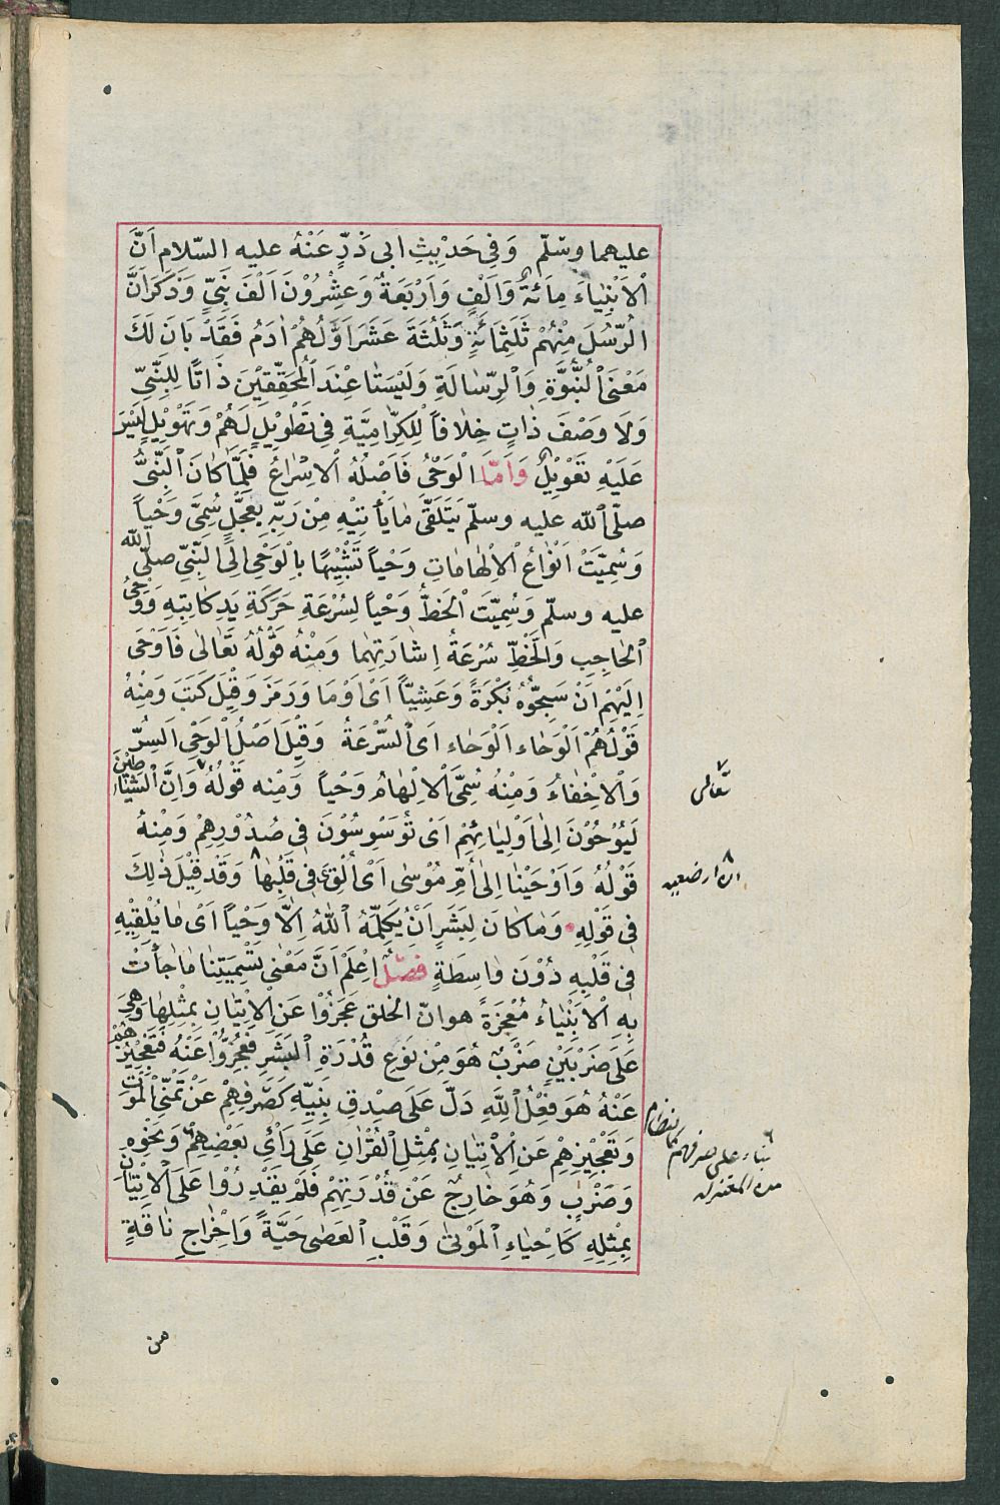 عليهما وسلّم وَفِى حَدِيْثِ ابى ذَرٍّ عَنْهُ عليه السّلام اَنَّ
الْاَنْبِيَاءَ مِائَةُ وَاَلْفٍ وَاَرْبَعَةُ وَعِشْرُوْنَ اَلْفَ نَبِىٍّ وَذَكَرَ اَنَّ
الرُّسُلَ مِنْهُمْ ثَلٰثُمِائَةٍ وَثَلٰثَةَ عَشَرَ اَوَّلُهُمْ اٰدَمُ فَقَدْ بَانَ لَكَ
مَعْنَى النُّبُوَّةِ وَالرِّسَالَةِ وَلَيْسَتَا عِنْدَ الْمُحَقِّقِيْنَ ذَاتًا لِلنَّبِىِّ
وَلَا وَصْفَ ذَاتٍ خِلَافاً لِلْكِرَّامِيَّةِ فِى تَطْوِيْلٍ لَهُمْ وَتَهْوِيْلٍ لَيْسَ
عَلَيْهِ تَعْوِيْلٌ وَاَمَّا الْوَحْىُ فَاَصْلُهُ الْاِسْرَاعُ فَلَمَّا كَانَ النَّبِىُّ
صلّى الله عليه وسلّم يَتَلَقّٰى مَا يَأْتِيْهِ مِنْ رَبِّهِ بِعَجَلٍ سُمِّىَ وَحْياً
وَسُمِّيَتْ اَنْوَاعُ الْاِلْهَامَاتِ وَحْياً تَشْبِيْهًا بِالْوَحْىِ اِلَى النَّبِىِّ صلّى الله
عليه وسلّم وَسُمِّيَتَ الْخَطُّ وَحْياً لِسُرْعَةِ حَرَكَةِ يَدِ كَاتِبِهِ وَوَحْىُ
الْحَاجِبِ وَالْخَطِّ سُرْعَةُ اِشَارَتِهِمَا وَمِنْهُ قَوْلُهُ تَعَالٰى فَاَوْحٰى
اِلَيْهِمْ اَنْ سَبِّحُوْهُ بُكْرَةً وَعَشِيًّا اَىْ اَوْمَا وَرَمَزَ وَقِيْلَ كَتَبَ وَمِنْهُ
قَوْلُهُمْ اَلْوَحَاء اَلْوَحَاء اَىِ السُّرْعَةُ وَقِيْلَ اَصْلُ الْوَحْىِ السِّرُّ
وَالْاِخْفَاءُ وَمِنْهُ سُمِّىَ الْاِلْهَامُ وَحْياً وَمِنْه قَوْلُهُ وَاِنَّ الشَّيَاطِيْنَ
لَيُوْحُوْنَ اِلٰى اَوْلِيَائِهِمْ اَىْ تُوَسْوِسُوْنَ فِى صُدُوْرِهِمْ وَمِنْهُ
قَوْلُهُ وَاَوْحَيْنَا اِلٰى اُمِّ مُوْسٰى اَىْ اُلْقِىَ فِى قَلْبِهَا وَقَدْ قِيْلَ ذٰلِكَ
فِى قَوْلِهِ وَمَا كَانَ لِبَشَرٍ اَنْ يُكَلِّمَهُ اللهُ اِلَّا وَحْياً اَىْ مَا يُلْقِيْهِ
فِى قَلْبِهِ دُوْنَ وَاسِطَةٍ فصْلٌ اِعْلَمْ اَنَّ مَعْنٰى تَسْمِيَتِنَا مَا جَأَتْ
بِهِ الْاَنْبِيَاءُ مُعْجِزَةً هو انّ الخلق عَجَزُوْا عَنِ الْاِتْيَانِ بِمِثْلِهَا وَهِىَ
عَلٰى ضَرْبَيْنِ ضَرْبٌ هُوَ مِنْ نَوْعِ قُدْرَةِ الْبَشَرِ فَعَجَزُوْا عَنْهُ فَتَعْجِيْزُهُمْ
عَنْهُ هُوَ فِعْلُ اللهِ دَلَّ عَلٰى صِدْقِ نَبِيِّهِ كَصَرْفِهِمْ عَنْ تَمَنِّى الْمَوْتِ
وَتَعْجِيْزِهِمْ عَنِ الْاِتْيَانِ بِمِثْلِ الْقُرْاٰنِ عَلٰى رَأْىِ بَعْضِهِمْ وَنَحْوِهِ
وَضَرْبٌ وَهُوَ خَارِجٌ عَنْ قُدْرَتِهِمْ فَلَمْ يَقْدِرُوْا عَلَى الْاِتْيَانِ
بِمِثْلِهِ كَاِحْيَاءِ الْمَوْتٰى وَقَلْبِ الْعَصٰى حَيَّةً وَاِخْرَاجِ نَاقَةٍ
تعالى
ان ارضعيه
بناء على صرفهم كالنظام
من المعتزلة
من